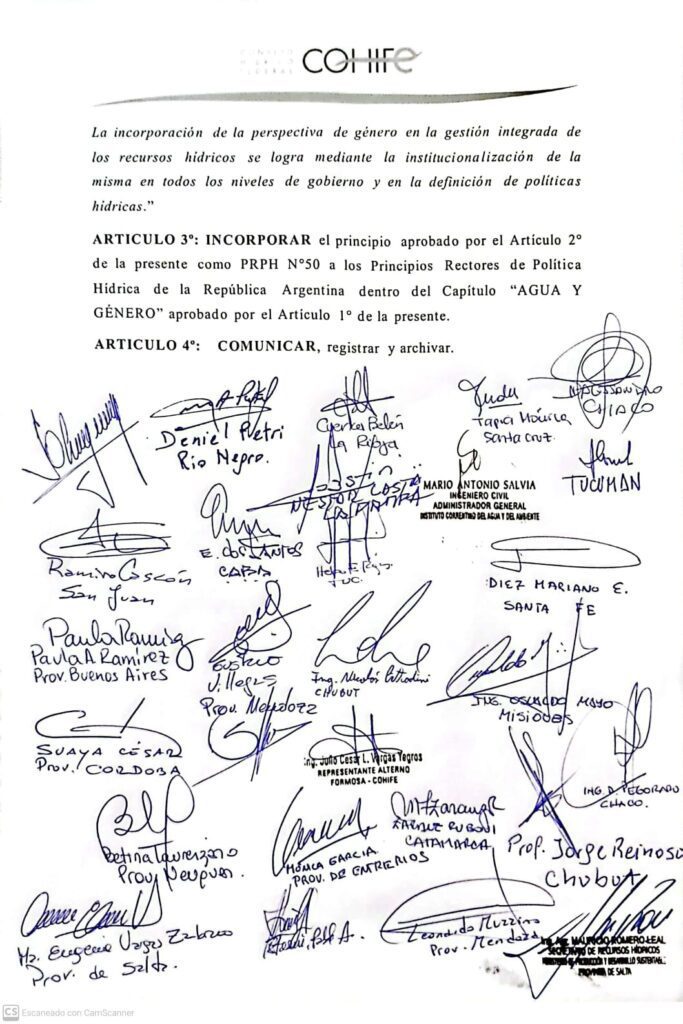 CONSEJO
HIDRICO
FEDERAL
COHIFE
La incorporación de la perspectiva de género en la gestión integrada de
los recursos hídricos se logra mediante la institucionalización de la
misma en todos los niveles de gobierno y en la definición de políticas
hídricas.”
ARTICULO 3º: INCORPORAR el principio aprobado por el Artículo 2º
de la presente como PRPH Nº50 a los Principios Rectores de Política
Hídrica de la República Argentina dentro del Capítulo “AGUA Y
GÉNERO” aprobado por el Articulo 1º de la presente.
ARTICULO 4º: COMUNICAR, registrar y archivar.
Daniel Petri
Rio Negro.
Belén
La Rioja
Tapia Mónica
Santa Cruz.
CHACO
TUCUMAN
NESTOR LASTIRI
LA PAMPA
MARIO ANTONIO SALVIA
INGENIERO CIVIL
ADMINISTRADOR GENERAL
INSTITUTO CORRENTINO DEL AGUA Y DEL AMBIENTE
E. DOS SANTOS
CABA
TUC.
Ramiro Cascón
San Juan
DIEZ MARIANO E.
SANTA FE
Paula Ramirez
Paula A Ramírez
Prov. Buenos Aires
Villegas
Prov. Mendoza
Ing. Nicolás
CHUBUT
ING. OSVALDO MAYO
MISIONES
SUAYA CÉSAR
Prov. CÓRDOBA
Ing. Julio Cesar L. Vargas Yegros
REPRESENTANTE ALTERNO
FORMOSA - COHIFE
ING. D. PEGORARO
CHACO.
Betina Laurenzano
Prov. Neuquen.
MÓNICA GARCIA
PROV. DE ENTRE RIOS
CATAMARCA
Prof. Jorge Reinoso
Chubut
Ma. Eugenia Vargas
Prov. de Salta.
Leonardo Muzzino
Prov. Mendoza
MAURICIO ROMERO LEAL
SECRETARIO DE RECURSOS HÍDRICOS
MINISTERIO DE PRODUCCIÓN Y DESARROLLO SUSTENTABLE
PROVINCIA DE SALTA
CS Escaneado con CamScanner